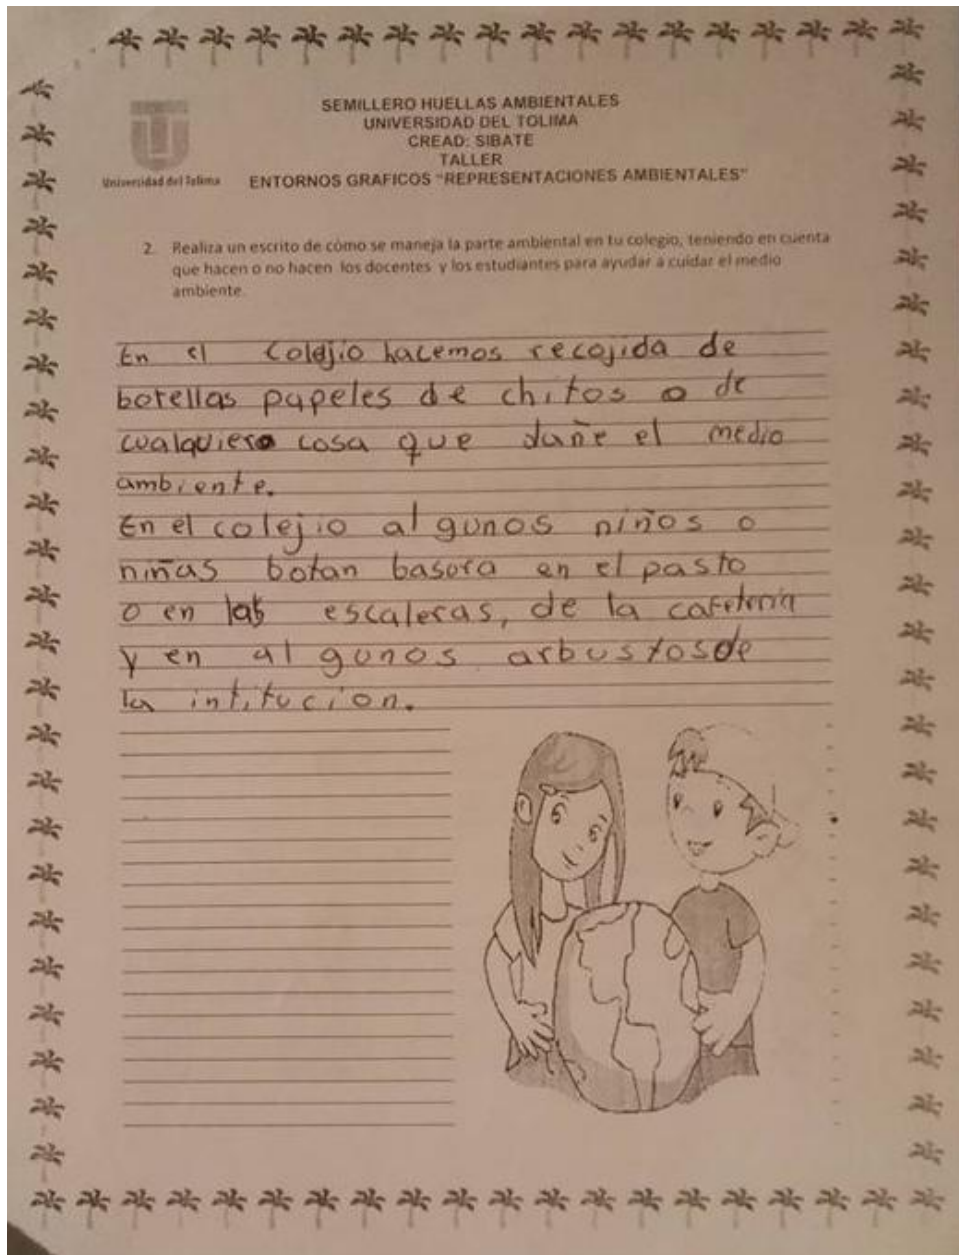 SEMILLERO HUELLAS AMBIENTALES
UNIVERSIDAD DEL TOLIMA
CREAD: SIBATE
TALLER
Universidad del Tolima
ENTORNOS GRAFICOS “REPRESENTACIONES AMBIENTALES”
2. Realiza un escrito de cómo se maneja la parte ambiental en tu colegio, teniendo en cuenta
que hacen o no hacen los docentes y los estudiantes para ayudar a cuidar el medio
ambiente.
En el Colejio hacemos recojida de
botellas papeles de chitos o de
cualquiera cosa que dañe el medio
ambiente.
En el colejio algunos niños o
niñas botan basura en el pasto
o en las escaleras, de la cafeteria
y en algunos arbustos de
la intitucion.